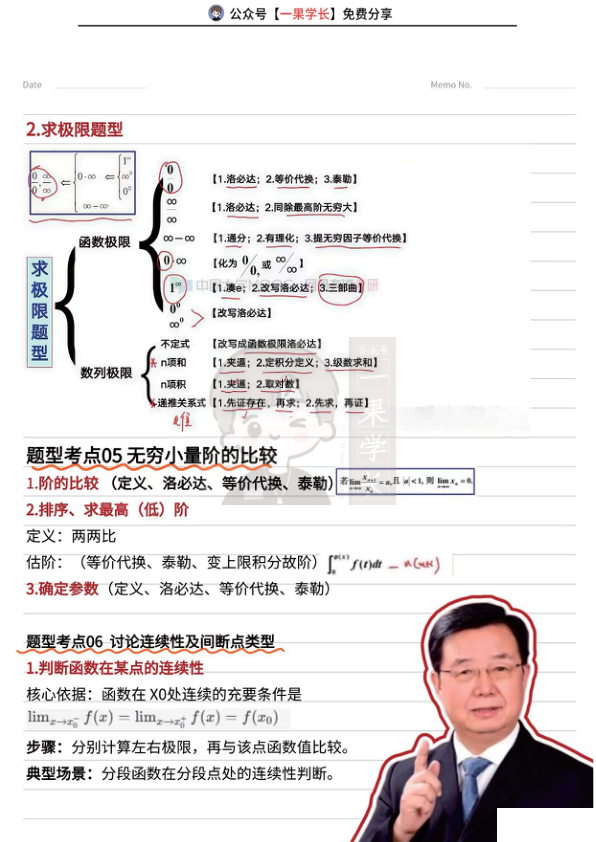 公众号【一果学长】免费分享
Date
Memo No.
2.求极限题型
0/0, ∞/∞ ⇐ { 0·∞ ⇐ { 1^∞ ∞^0 0^0
∞-∞
求极限题型
函数极限
0/0 【1.洛必达；2.等价代换；3.泰勒】
∞/∞ 【1.洛必达；2.同除最高阶无穷大】
∞-∞ 【1.通分；2.有理化；3.提无穷因子等价代换】
0·∞ 【化为 0/0, 或 ∞/∞】
1^∞ 【1.凑e；2.改写洛必达；3.三部曲】
0^0
∞^0 【改写洛必达】
数列极限
不定式 【改写成函数极限洛必达】
n项和 【1.夹逼；2.定积分定义；3.级数求和】
n项积 【1.夹逼；2.取对数】
递推关系式【1.先证存在，再求；2.先求，再证】
难
公众号
一果学长
题型考点05 无穷小量阶的比较
1.阶的比较 （定义、洛必达、等价代换、泰勒） 若 lim_{n→∞} x_{n+1}/x_n = a, 且 |a|<1, 则 lim_{n→∞} x_n = 0.
2.排序、求最高（低）阶
定义：两两比
估阶：（等价代换、泰勒、变上限积分故阶） ∫_0^{φ(x)} f(t)dt
3.确定参数（定义、洛必达、等价代换、泰勒）
题型考点06 讨论连续性及间断点类型
1.判断函数在某点的连续性
核心依据：函数在 X0处连续的充要条件是
lim_{x→x_0^-} f(x) = lim_{x→x_0^+} f(x) = f(x_0)
步骤：分别计算左右极限，再与该点函数值比较。
典型场景：分段函数在分段点处的连续性判断。